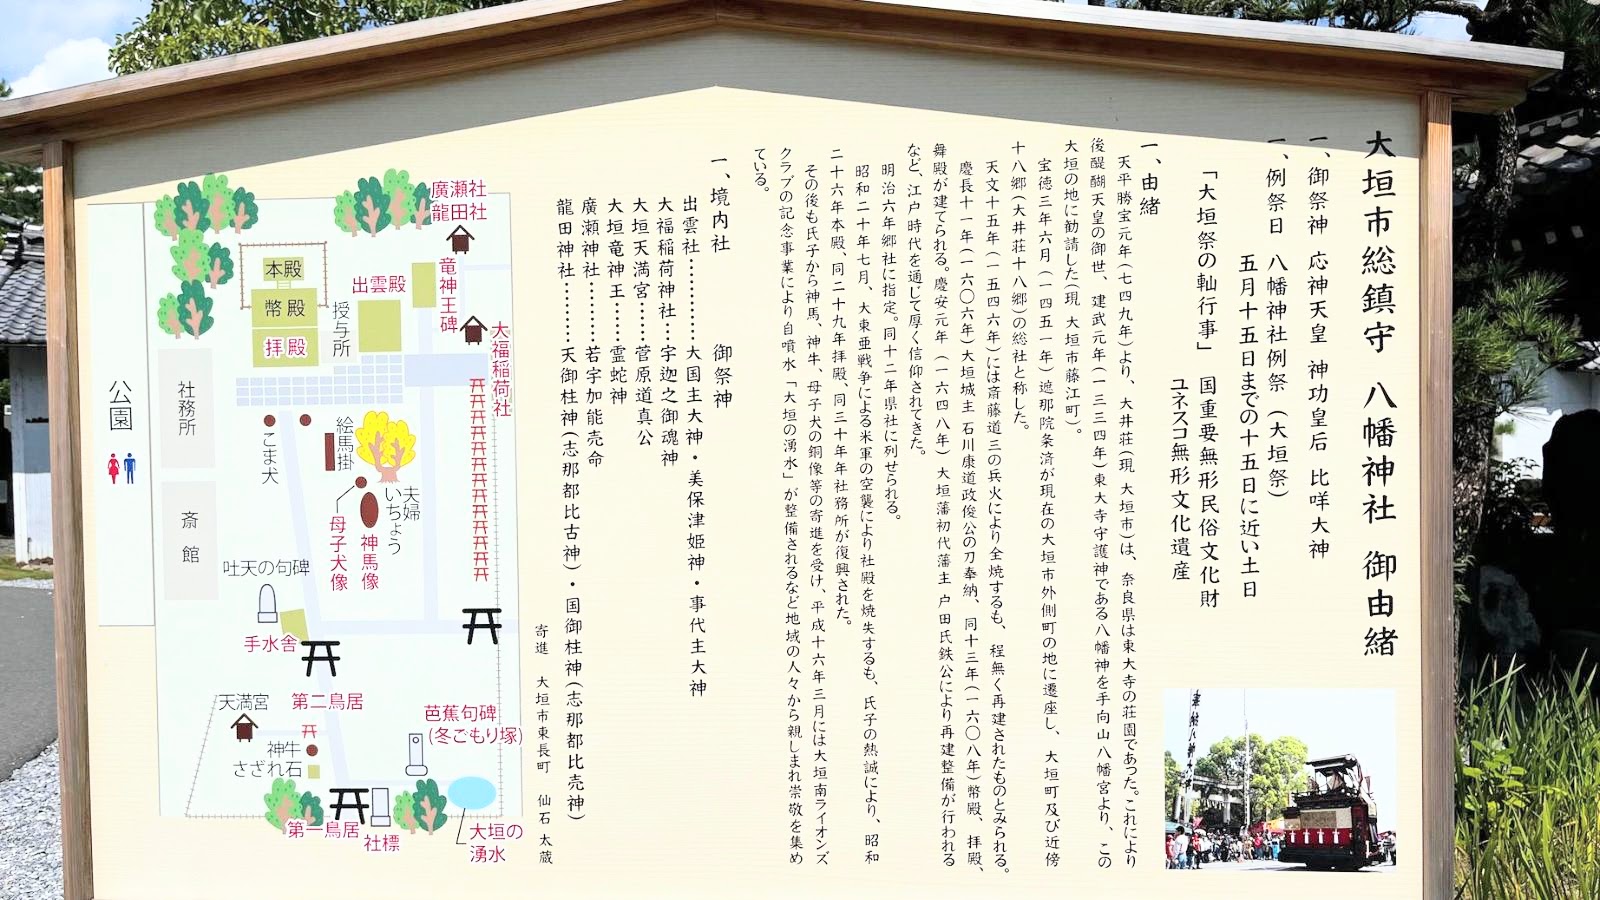 大垣市総鎮守 八幡神社 御由緒
一、御祭神 応神天皇 神功皇后 比咩大神
一、例祭日 八幡神社例祭(大垣祭)
五月十五日までの十五日に近い土日
「大垣祭の軕行事」 国重要無形民俗文化財
ユネスコ無形文化遺産
一、由緒
天平勝宝元年(七四九年)より、大井荘(現 大垣市)は、奈良県は東大寺の荘園であった。これにより
後醍醐天皇の御世、建武元年(一三三四年)東大寺守護神である八幡神を手向山八幡宮より、この
大垣の地に勧請した(現 大垣市藤江町)。
宝徳三年六月(一四五一年)遮那院粂済が現在の大垣市外側町の地に遷座し、大垣町及び近傍
十八郷(大井荘十八郷)の総社と称した。
天文十五年(一五四六年)には斎藤道三の兵火により全焼するも、程無く再建されたものとみられる。
慶長十一年(一六〇六年)大垣城主 石川康道政俊公の刀奉納、同十三年(一六〇八年)幣殿、拝殿、
舞殿が建てられる。慶安元年(一六四八年)大垣藩初代藩主 戸田氏鉄公により再建整備が行われる
など、江戸時代を通じて厚く信仰されてきた。
明治六年郷社に指定。同十二年県社に列せられる。
昭和二十年七月、大東亜戦争による米軍の空襲により社殿を焼失するも、氏子の熱誠により、昭和
二十六年本殿、同二十九年拝殿、同三十年年社務所が復興された。
その後も氏子から神馬、神牛、母子犬の銅像等の寄進を受け、平成十六年三月には大垣南ライオンズ
クラブの記念事業により自噴水「大垣の湧水」が整備されるなど地域の人々から親しまれ崇敬を集め
ている。
一、境内社 御祭神
出雲社………大国主大神・美保津姫神・事代主大神
大福稲荷神社…宇迦之御魂神
大垣天満宮……菅原道真公
大垣竜神王……霊蛇神
廣瀬神社………若宇加能売命
龍田神社………天御柱神(志那都比古神)・国御柱神(志那都比売神)
寄進 大垣市東長町 仙石 太蔵
廣瀬社
龍田社
本殿
幣殿
拝殿
授与所
出雲殿
竜神王碑
大福稲荷社
公園
社務所
斎館
こま犬
絵馬掛
夫婦
いちょう
母子犬像
神馬像
吐天の句碑
手水舎
第二鳥居
天満宮
神牛
さざれ石
芭蕉句碑
(冬ごもり塚)
第一鳥居
社標
大垣の
湧水